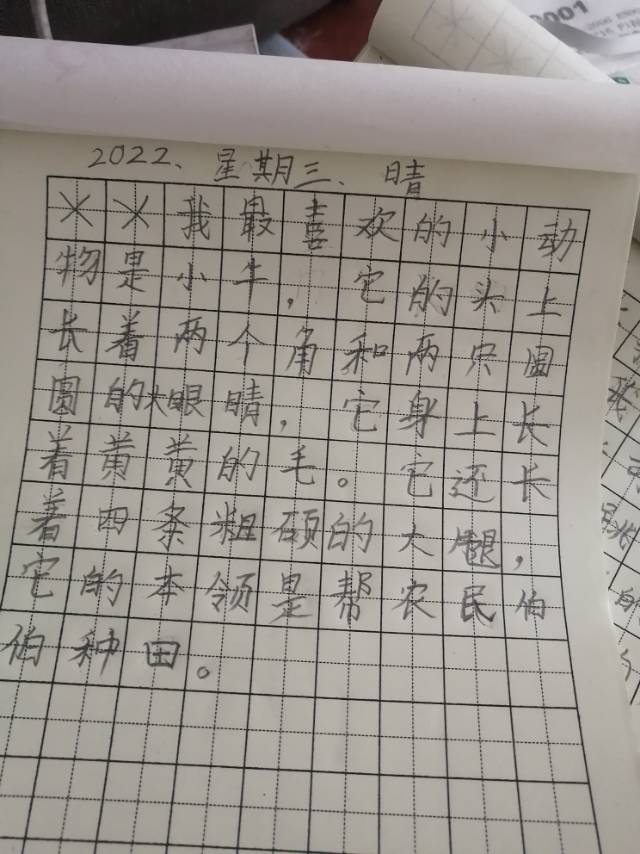 001
2022、星期三、晴
××我最喜欢的小动
物是小牛，它的头上
长着两个角和两只圆
圆的大眼晴，它身上长
着黄黄的毛。它还长
着四条粗硕的大腿，
它的本领是帮农民伯
伯种田。